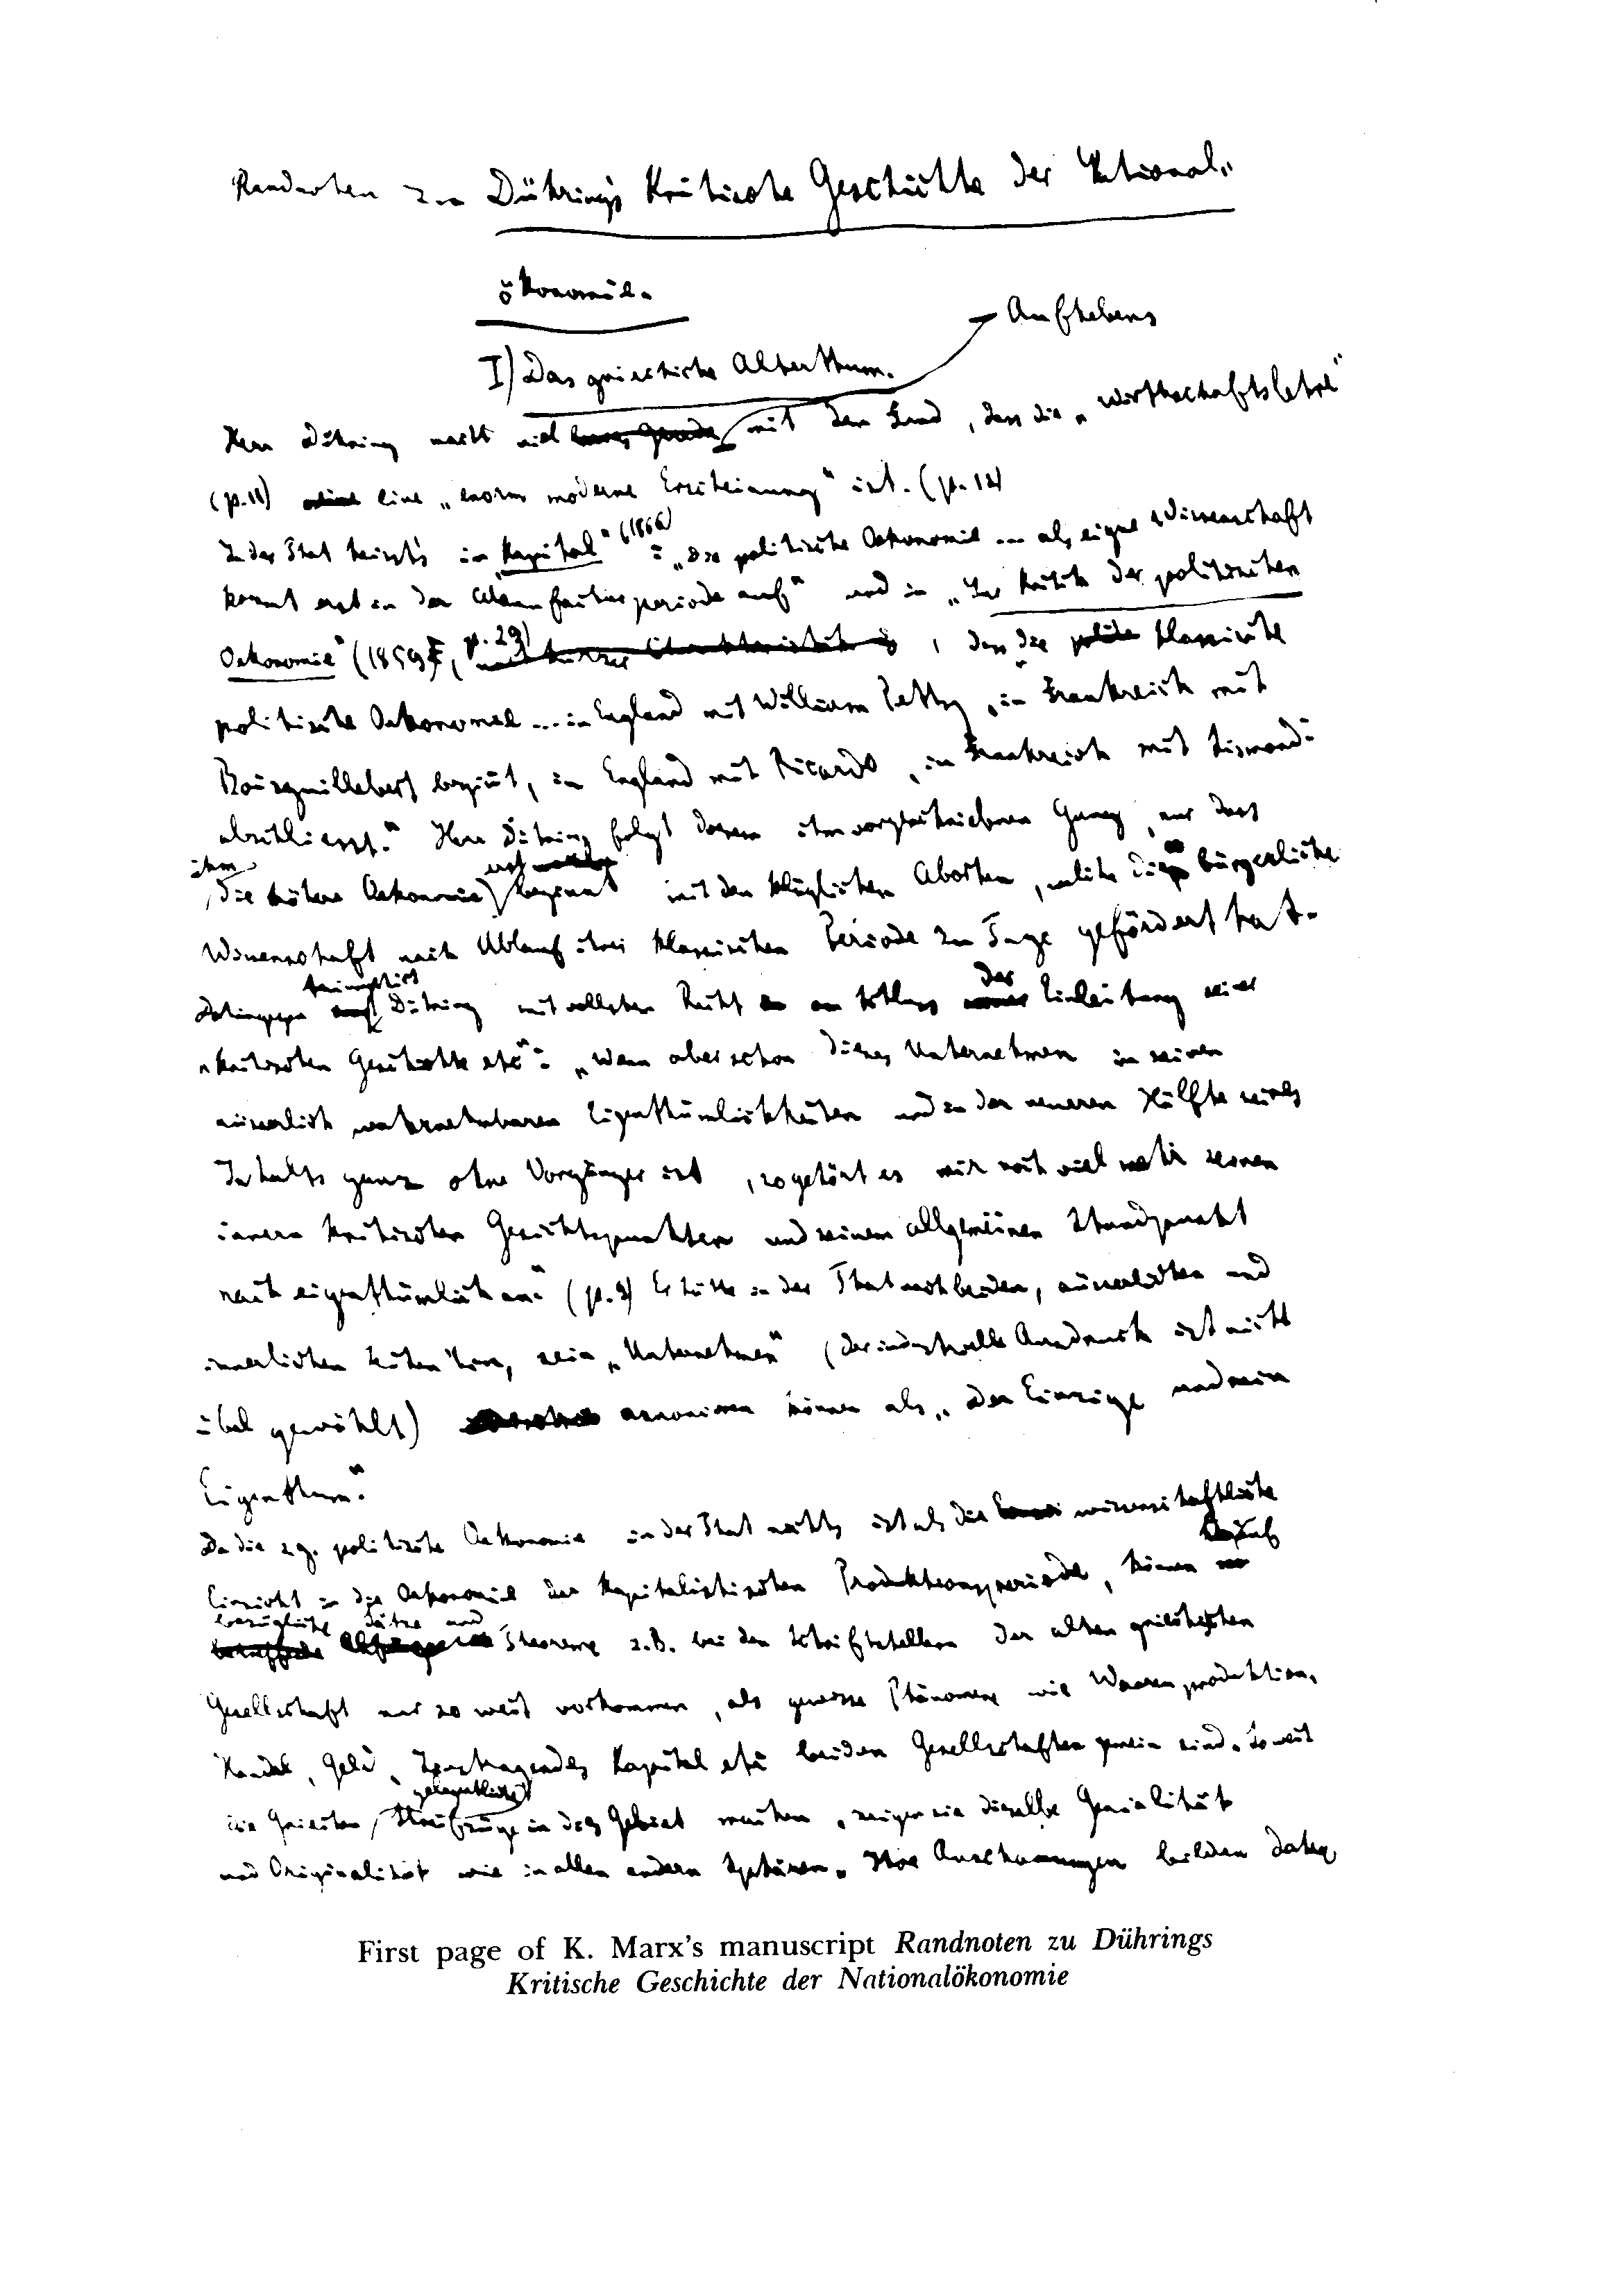 Randnoten zu Dühring's Kritische Geschichte der National-
ökonomie.
Aufhebens
I) Das griechische Alterthum.
Herr Dühring macht viel mit dem Fund, dass die „Wirthschaftslehre"
(p. 11) eine „enorm moderne Erscheinung" ist. (p. 12)
In der That heisst's im „Kapital" (1866) : „Die politische Oekonomie ... als eigne Wissenschaft
kommt erst in der Manufacturperiode auf" und in „Zur Kritik der politischen
Oekonomie" (1859), p. 29) , dass die klassische
politische Oekonomie ... in England mit William Petty, in Frankreich mit
Boisguillebert beginnt, in England mit Ricardo, in Frankreich mit Sismondi
abschliesst." Herr Dühring folgt diesem ihm vorgeschriebnen Gang, nur dass
ihm
die höhere Oekonomie erst beginnt mit den kläglichen Aborten, welche die bürgerliche
Wissenschaft nach Ablauf ihrer klassischen Periode zu Tage gefördert hat.
Dahingegen triumphirt Dühring mit vollstem Recht am Schluss der Einleitung seiner
„Kritischen Geschichte etc": „Wenn aber schon dieses Unternehmen in seinen
äusserlich wahrnehmbaren Eigenthümlichkeiten und in der neueren Hälfte seines
Inhalts ganz ohne Vorgänger ist, so gehört es mir noch viel mehr seinen
innern kritischen Gesichtspunkten und seinem allgemeinen Standpunkt
nach eigenthümlich an." (p. 9) Er hätte in der That nach beiden, äusserlichen und
innerlichen Seiten hin, sein „Unternehmen" (der industrielle Ausdruck ist nicht
übel gewählt) annonciren können als „Der Einzige und sein
Eigenthum."
Da die s.g. politische Oekonomie in der That nichts ist als die wissenschaftliche
Einsicht in die Oekonomie der kapitalistischen Produktionsperiode, können darauf
bezügliche Sätze und Theoreme z.B. bei den Schriftstellern der alten griechischen
Gesellschaft nur so weit vorkommen, als gewisse Phänomene wie Waarenproduktion,
Handel, Geld, Zinstragendes Kapital etc beiden Gesellschaften gemein sind. So weit
die Griechen gelegentliche Streifzüge in dies Gebiet machen, zeigen sie dieselbe Genialität
und Originalität wie in allen andern Sphären. Ihre Anschauungen bilden daher
First page of K. Marx's manuscript Randnoten zu Dührings
Kritische Geschichte der Nationalökonomie